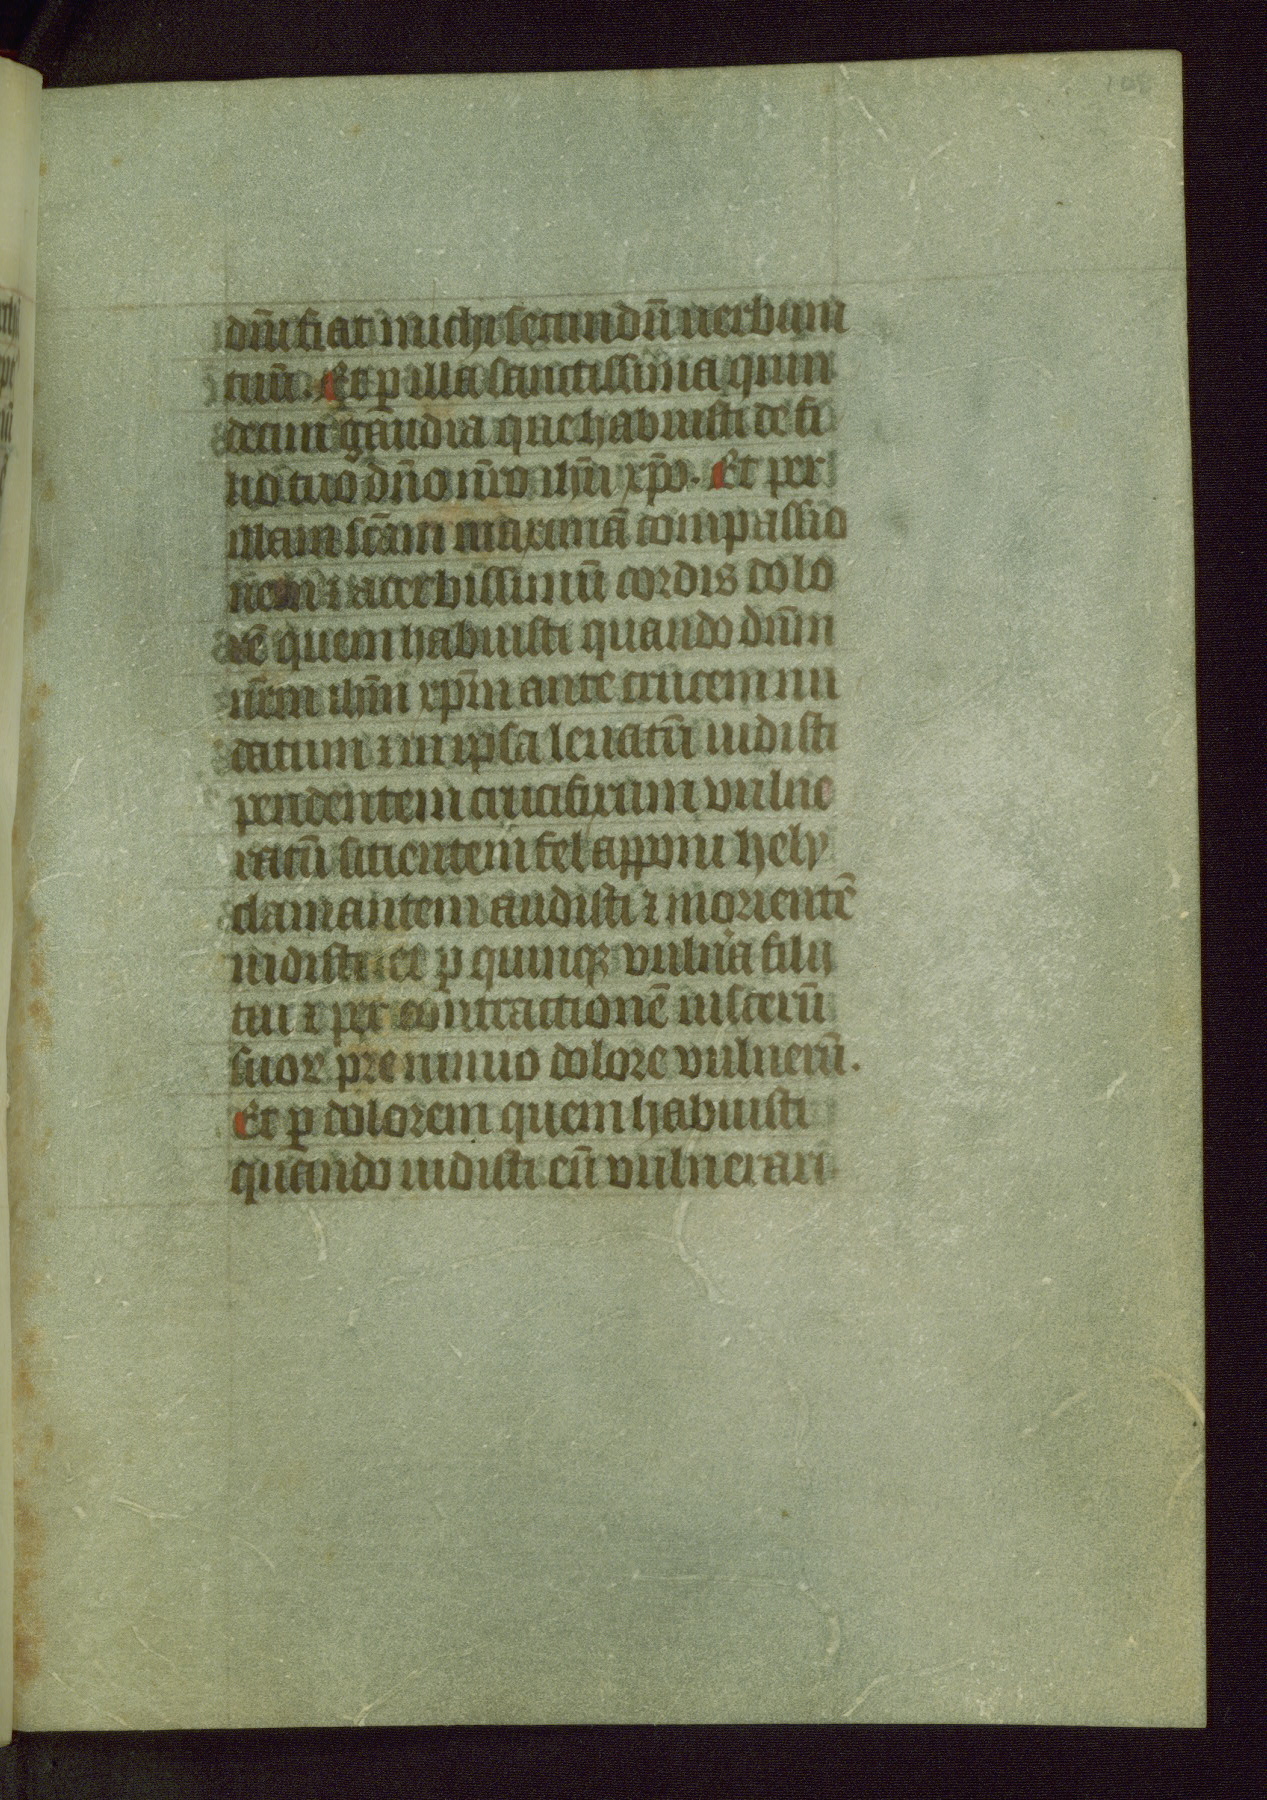 108
dñi fiat michi secundū uerbum
tuū. Et ꝑ illa sanctissima quin
decim gaudia que habuisti de fi
lio tuo dño nr̄o ihū xp̄o. Et per
illam sc̄am maximā compassio
nem ⁊ acerbissimū cordis dolo
rē quem habuisti quando dn̄m
nr̄m ihm̄ xp̄m ante crucem nu
datum ⁊ in ipsa leuatū uidisti
pendentem crucifixum vulne
ratū sitientem fel apponi hely
clamantem audisti ⁊ morientē
uidisti et ꝑ quinqꝫ vulnͣa filij
tui ⁊ per contractionē uiscerū
suoꝝ pre nimio dolore vulnerū.
Et ꝑ dolorem quem habuisti
quando uidisti eū vulnerari